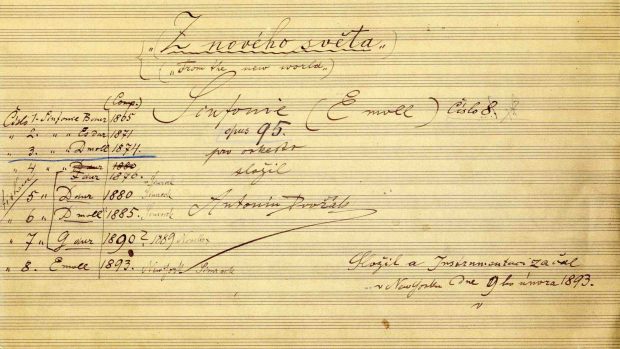 „Z nového světa„
(„From the new world.„)
Sinfonie (E moll) Číslo 8.
opus 95.
pro orkestr
složil
Antonín Dvořák
(Comp.)
Číslo 1. Sinfonie B dur 1865
„ 2. „ „ Es dur 1871
„ 3. „ „ D moll 1874.
„ 4 „ D dur 1880
F dur 1870.
„ 5 „ D dur 1880
„ 6 „ D moll 1885.
„ 7 „ G dur 1890? 1889
„ 8. E moll 1893. New York
Složil a Instrumentaci začal
v New Yorku dne 9ho února 1893.